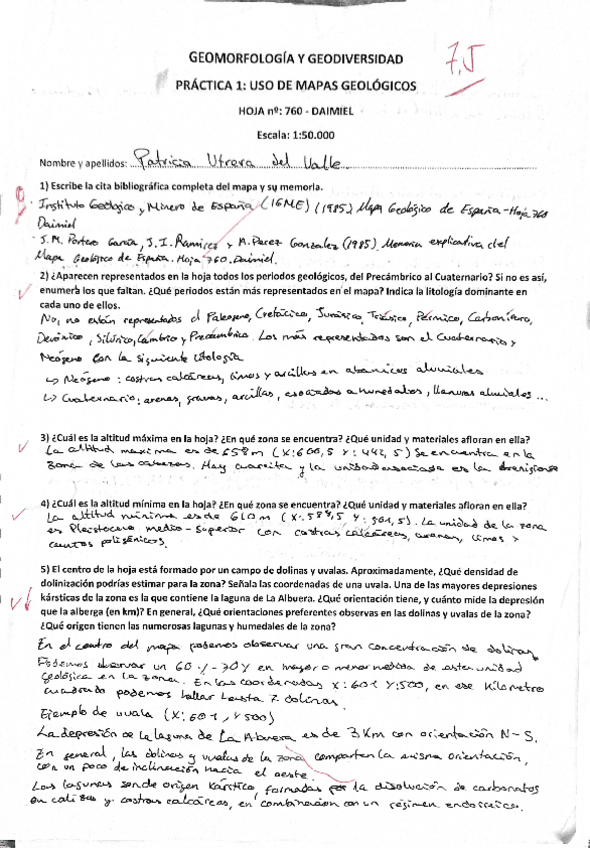 GEOMORFOLOGÍA Y GEODIVERSIDAD
7,5
PRÁCTICA 1: USO DE MAPAS GEOLÓGICOS
HOJA nº: 760 - DAIMIEL
Escala: 1:50.000
Nombre y apellidos: Patricia Utrera del Valle
1) Escribe la cita bibliográfica completa del mapa y su memoria.
· Instituto Geológico y Minero de España (IGME) (1985) Mapa Geológico de España - Hoja 760
Daimiel
· J.M. Portero García, J.I. Ramírez y A. Perez Gonzalez (1985) Memoria explicativa del
Mapa Geológico de España. Hoja 760. Daimiel.
2) ¿Aparecen representados en la hoja todos los periodos geológicos, del Precámbrico al Cuaternario? Si no es así,
enumera los que faltan. ¿Qué periodos están más representados en el mapa? Indica la litología dominante en
cada uno de ellos.
No, no están representados el Paleogeno, Cretácico, Jurásico, Triásico, Pérmico, Carbonífero,
Devónico, Silúrico, Cámbrico y Precámbrico. Los más representados son el Cuaternario y
Neógeno con la siguiente litología
↳ Neógeno: costras calcáreas, limos y arcillas en abanicos aluviales
↳ Cuaternario: arenas, gravas, arcillas, asociados a humedales, llanuras aluviales ...
3) ¿Cuál es la altitud máxima en la hoja? ¿En qué zona se encuentra? ¿Qué unidad y materiales afloran en ella?
La altitud máxima es de 658m (X:600,5 Y:442,5) Se encuentra en la
zona de las cabezas. Hay cuarcita y la unidad asociada es la
4) ¿Cuál es la altitud mínima en la hoja? ¿En qué zona se encuentra? ¿Qué unidad y materiales afloran en ella?
La altitud mínima es de 610m (X:584,5 Y:501,5). La unidad de la zona
es Pleistoceno medio-superior con costras calcáreas, arenas, limos y
cantos poligénicos.
5) El centro de la hoja está formado por un campo de dolinas y uvalas. Aproximadamente, ¿Qué densidad de
dolinización podrías estimar para la zona? Señala las coordenadas de una uvala. Una de las mayores depresiones
kársticas de la zona es la que contiene la laguna de La Albuera. ¿Qué orientación tiene, y cuánto mide la depresión
que la alberga (en km)? En general, ¿Qué orientaciones preferentes observas en las dolinas y uvalas de la zona?
¿Qué origen tienen las numerosas lagunas y humedales de la zona?
En el centro del mapa podemos observar una gran concentración de dolinas
Podemos observar un 60% - 70% en mayor o menor medida de esta unidad
geológica en la zona. En las coordenadas X:601 Y:500, en ese Kilometro
cuadrado podemos hallar hasta 7 dolinas.
Ejemplo de uvala (X:601, Y500)
La depresión de la laguna de La Albuera es de 3 Km con orientación N-S.
En general, las dolinas y uvalas de la zona comparten la misma orientación,
con un poco de inclinación hacia el oeste.
Las lagunas son de origen Kárstico, formadas por la disolución de carbonatos
en calizas y costras calcáreas, en combinación con un régimen endorreico.